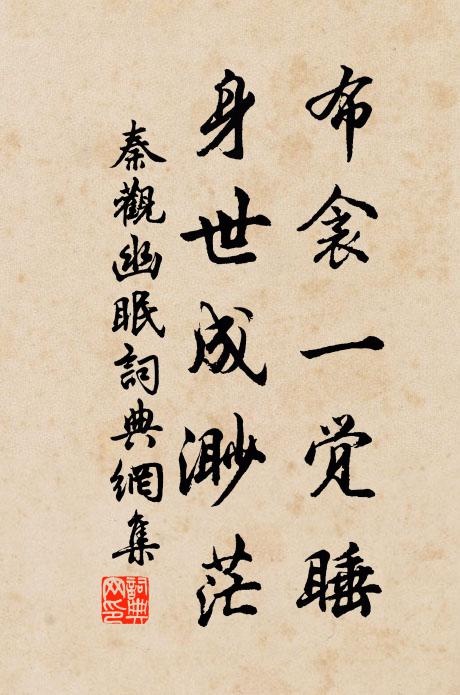 布衾一觉睡
身世成渺茫
秦觀幽眠詞典網集